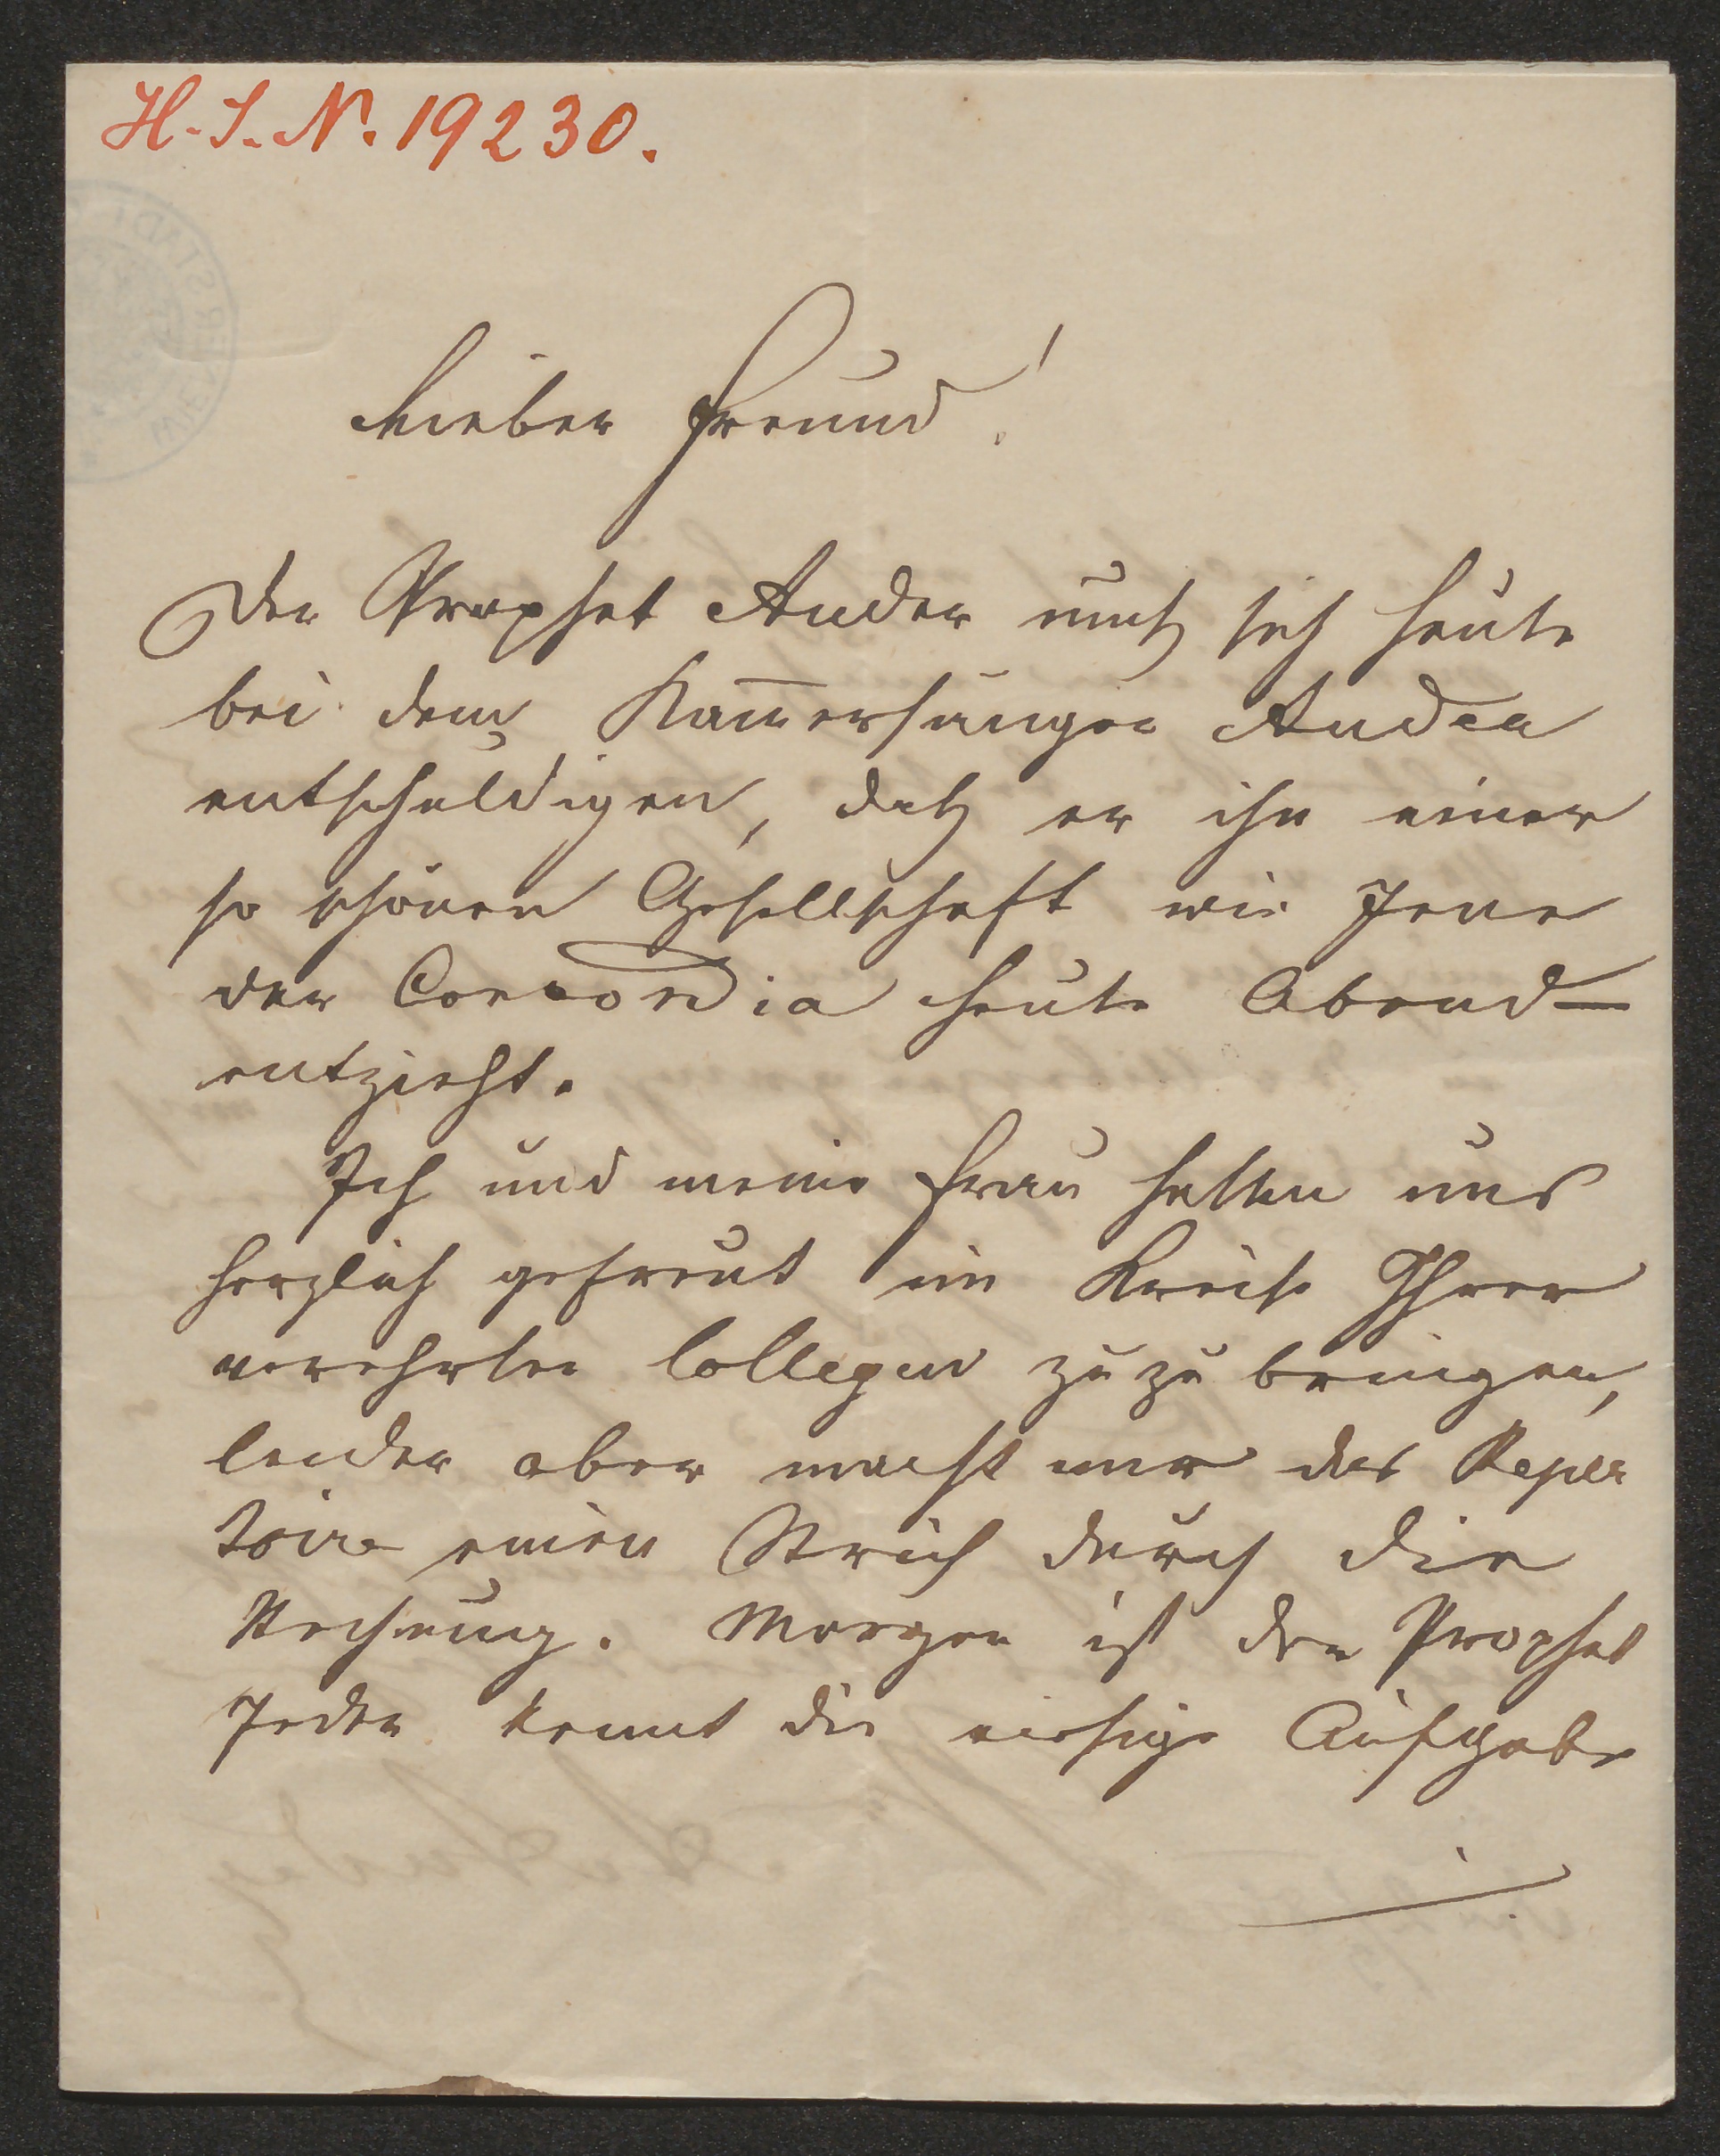 H. I. N. 19230.
Lieber Freund!
Der Prophet Ander muß sich heute
bei dem Kam̅ersänger Ander
entschuldigen, daß er ihn einer
so schönen Gesellschaft wie Jene
der Concordia heute Abend
entzieht.
Ich und meine Frau hatten uns
herzlich gefreut im Kreise Ihrer
verehrten Collegen zuzubringen,
leider aber macht mir das Reper
toire einen Strich durch die
Rechnung. Morgen ist der Prophet
Jeder kennt die riesige Aufgabe